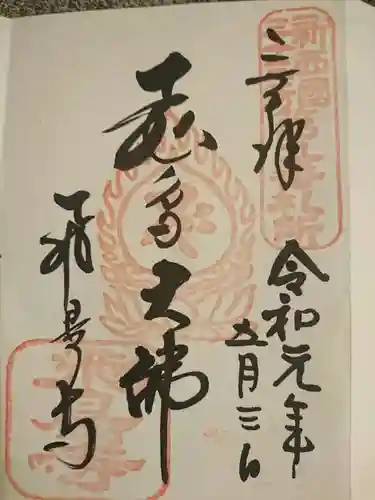 新西國
奉拝
令和元年
五月三日
飛鳥大佛
飛鳥寺